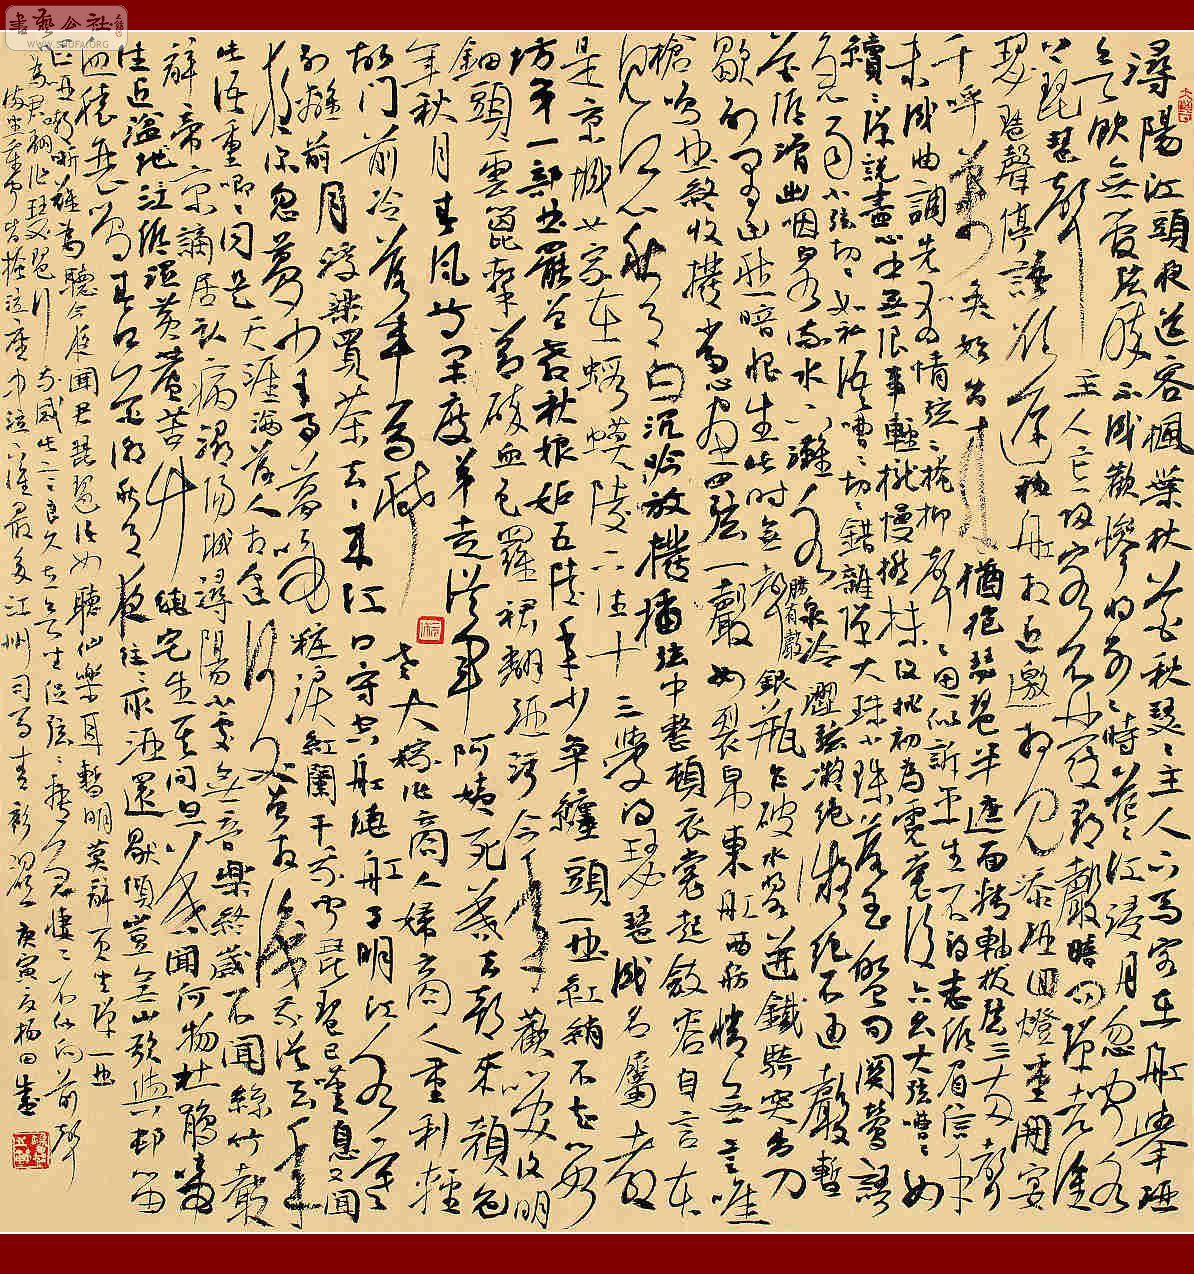 書藝公社
WWW.SHUFA.ORG
潯陽江頭夜送客楓葉荻花秋瑟瑟主人下馬客在船舉酒
欲飲無管弦醉不成歡慘將別別時茫茫江浸月忽聞水
上琵琶聲主人忘歸客不發尋聲暗問彈者誰
琵琶聲停語欲遲移船相近邀相見添酒回燈重開宴
千呼萬喚始出來猶抱琵琶半遮面轉軸撥弦三兩聲
未成曲調先有情弦弦掩抑聲聲思似訴平生不得志低眉信手
續續彈說盡心中無限事輕攏慢撚抹復挑初為霓裳後六幺大弦嘈嘈如
急雨小弦切切如私語嘈嘈切切錯雜彈大珠小珠落玉盤間關鶯語
花底滑幽咽泉流水下灘水泉冷澀弦凝絕凝絕不通聲暫
歇別有幽愁暗恨生此時無聲勝有聲銀瓶乍破水漿迸鐵騎突出刀
槍鳴曲終收撥當心畫四弦一聲如裂帛東船西舫悄無言唯
見江心秋月白沉吟放撥插弦中整頓衣裳起斂容自言本
是京城女家在蝦蟆陵下住十三學得琵琶成名屬教
坊第一部曲罷曾教秋娘妒五陵年少爭纏頭一曲紅綃不知數
鈿頭雲篦擊節碎血色羅裙翻酒污今年歡笑復明
年秋月春風等閒度弟走從軍阿姨死暮去朝來顏色
故門前冷落車馬稀老大嫁作商人婦商人重利輕
別離前月浮梁買茶去去來江口守空船繞船月明江水寒
夜深忽夢少年事夢啼粧淚紅闌干我聞琵琶已嘆息又聞
此語重唧唧同是天涯淪落人相逢何必曾相識我從去年
辭帝京謫居臥病潯陽城潯陽小處無音樂終歲不聞絲竹聲
住近湓地低濕黃蘆苦竹繞宅生其間旦暮聞何物杜鵑啼
血猿哀鳴春江花朝秋月夜往往取酒還獨傾豈無山歌與村笛
嘔啞嘲哳難為聽今夜聞君琵琶語如聽仙樂耳暫明莫辭更坐彈一曲
為君翻作琵琶行感我此言良久立卻坐促弦弦轉急淒淒不似向前聲
滿座重聞皆掩泣座中泣下誰最多江州司馬青衫濕 庚寅夏楊